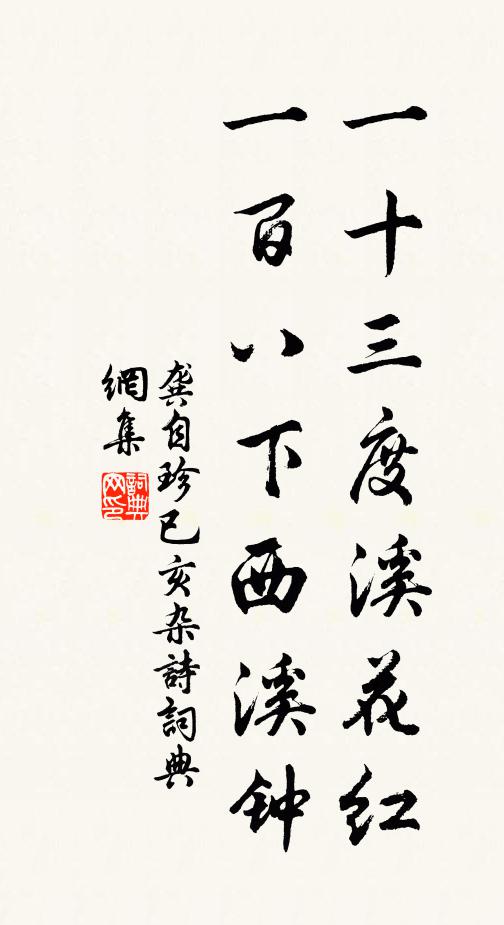 一十三度溪花红
一百八下西溪钟
龔自珍已亥杂詩詞典
網集
詞典
网印